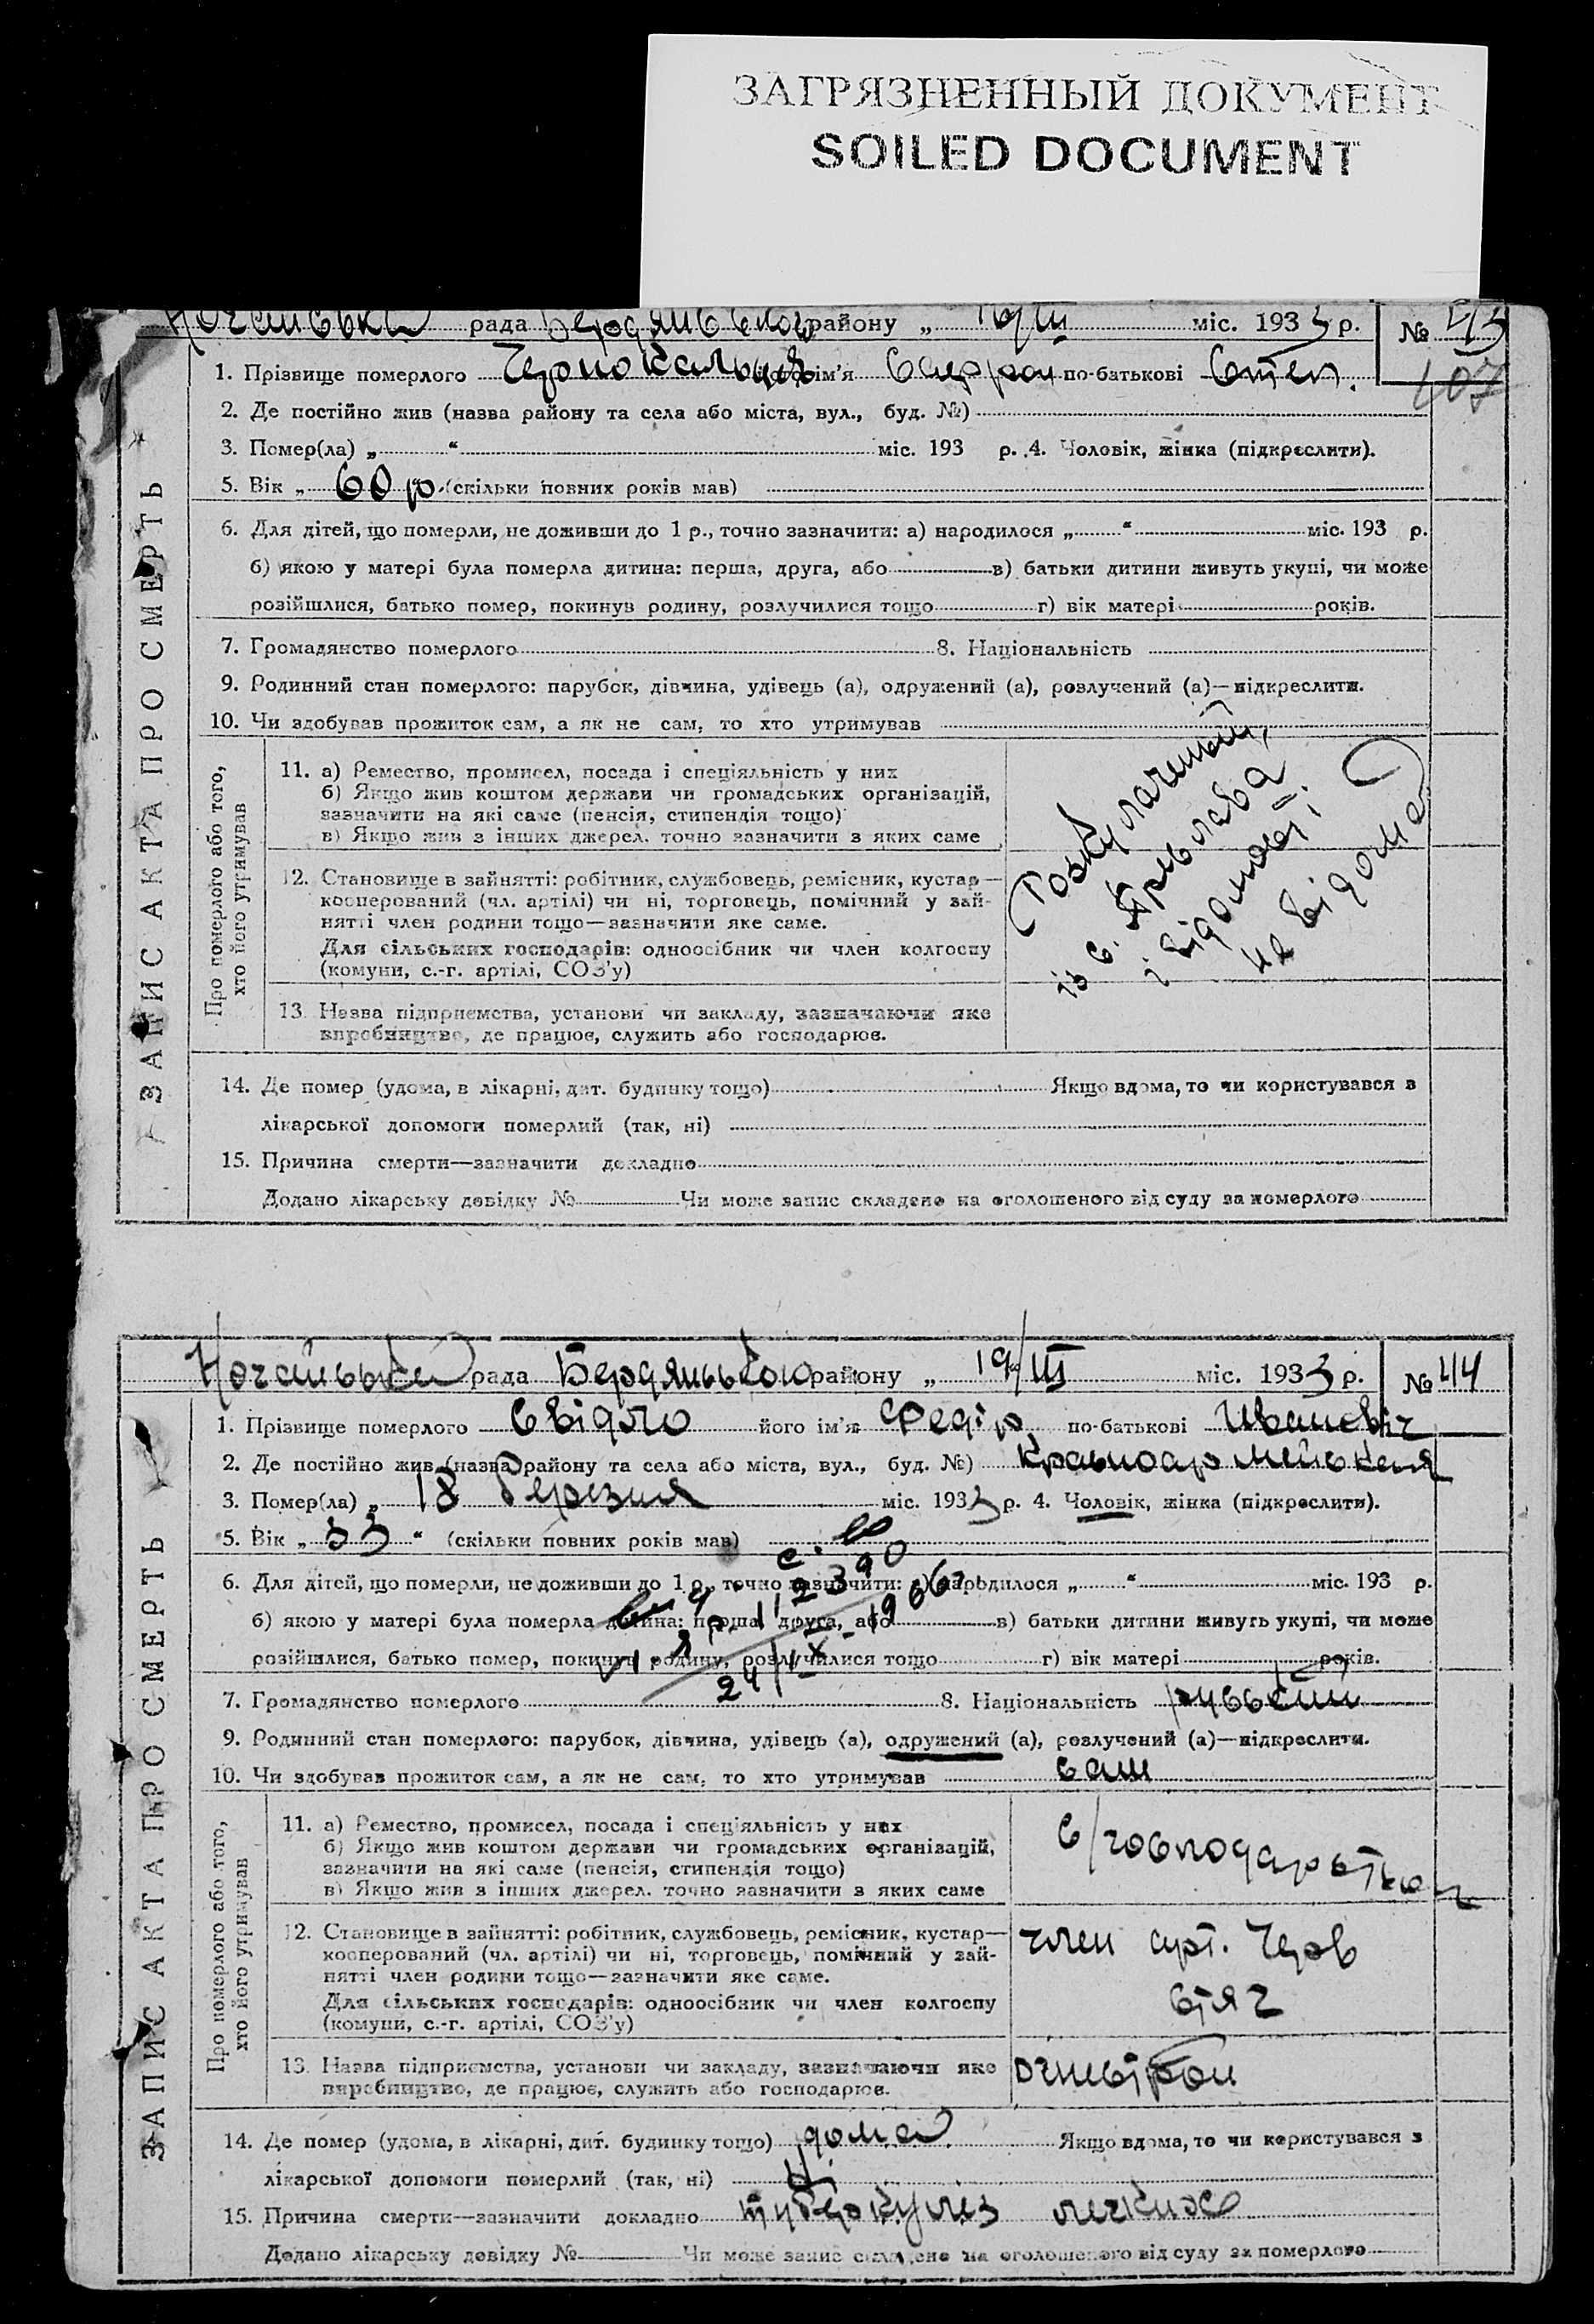 ЗАГРЯЗНЕННЫЙ ДОКУМЕНТ
SOILED DOCUMENT
рада Бердянського району „ міс. 1933 р. № 43
107
1. Прізвище померлого його ім'я по-батькові Степ.
2. Де постійно жив (назва району та села або міста, вул., буд. №)
3. Помер(ла) „ “ міс. 193 р. 4. Чоловік, жінка (підкреслити).
5. Вік „ 60 р. (скільки повних років мав)
6. Для дітей, що померли, не доживши до 1 р., точно зазначити: а) народилося „ “ міс. 193 р.
б) якою у матері була померла дитина: перша, друга, або в) батьки дитини живуть укупі, чи може
розійшлися, батько помер, покинув родину, розлучилися тощо г) вік матері років.
7. Громадянство померлого 8. Національність
9. Родинний стан померлого: парубок, дівчина, удівець (а), одружений (а), розлучений (а)—підкреслити.
10. Чи здобував прожиток сам, а як не сам, то хто утримував
Про померлого або того, хто його утримував
11. а) Ремество, промисел, посада і спеціяльність у них
б) Якщо жив коштом держави чи громадських організацій,
зазначити на які саме (пенсія, стипендія тощо)
в) Якщо жив з інших джерел. точно зазначити з яких саме
12. Становище в зайнятті: робітник, службовець, ремісник, кустар—
кооперований (чл. артілі) чи ні, торговець, помічний у зай-
нятті член родини тощо—зазначити яке саме.
Для сільських господарів: одноосібник чи член колгоспу
(комуни, с.-г. артілі, СОЗ'у)
13. Назва підприємства, установи чи закладу, зазначаючи яке
виробництво, де працює, служить або господарює.
Розкулачений,
із с.
і відомості
не відома
14. Де помер (удома, в лікарні, дит. будинку тощо) Якщо вдома, то чи користувався з
лікарської допомоги померлий (так, ні)
15. Причина смерти—зазначити докладно
Додано лікарську довідку № Чи може запис складено на оголошеного від суду за померлого
ЗАПИС АКТА ПРО СМЕРТЬ
рада Бердянського району „ 19/III міс. 1933 р. № 44
1. Прізвище померлого Свідло його ім'я Федір по-батькові Іванович
2. Де постійно жив (назва району та села або міста, вул., буд. №) Красноармейская
3. Помер(ла) „ 18 березня міс. 1933 р. 4. Чоловік, жінка (підкреслити).
5. Вік „ 33 “ (скільки повних років мав)
6. Для дітей, що померли, не доживши до 1 р., точно зазначити: а) народилося „ “ міс. 193 р.
б) якою у матері була померла дитина: перша, друга, або в) батьки дитини живуть укупі, чи може
розійшлися, батько помер, покинув родину, розлучилися тощо г) вік матері років.
7. Громадянство померлого 8. Національність руський
9. Родинний стан померлого: парубок, дівчина, удівець (а), одружений (а), розлучений (а)—підкреслити.
10. Чи здобував прожиток сам, а як не сам, то хто утримував сам
Про померлого або того, хто його утримував
11. а) Ремество, промисел, посада і спеціяльність у них
б) Якщо жив коштом держави чи громадських організацій,
зазначити на які саме (пенсія, стипендія тощо)
в) Якщо жив з інших джерел. точно зазначити з яких саме
12. Становище в зайнятті: робітник, службовець, ремісник, кустар—
кооперований (чл. артілі) чи ні, торговець, помічний у зай-
нятті член родини тощо—зазначити яке саме.
член арт. Черв
стяг
Для сільських господарів: одноосібник чи член колгоспу
(комуни, с.-г. артілі, СОЗ'у)
13. Назва підприємства, установи чи закладу, зазначаючи яке
виробництво, де працює, служить або господарює.
14. Де помер (удома, в лікарні, дит. будинку тощо) дома Якщо вдома, то чи користувався з
лікарської допомоги померлий (так, ні) Ні
15. Причина смерти—зазначити докладно туберкульоз легких
Додано лікарську довідку № Чи може запис складено на оголошеного від суду за померлого
ЗАПИС АКТА ПРО СМЕРТЬ